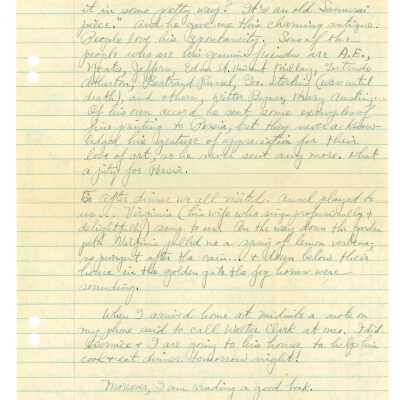 it in some pretty way? It's an old Samurai
piece." And he gave me this charming antique.
People love his spontaneity. Some of the
people who are his genuine friends are A.E.,
Yeats, Jeffers, Edna St. Vincent Millay, Gertrude
Atherton, Bertrand Russel, Geo. Sterling (was until
death), and others, Witter Bynner, Mary Austin...
Of his own accord he sent some examples of
fine printing to Persia, but they never acknow-
ledged his gesture of appreciation for their
love of art, so he never sent any more. What
a pity for Persia.
After dinner we all visited. Ansel played to
us... Virginia (his wife who sings professionally &
delightfully) sang to us. On the way down the garden
path Virginia pulled me a sprig of lemon verbena,
so pungent after the rain... & down below their
house in the golden gate the fog horns were
sounding.
When I arrived home at midnite a note on
my phone said to call Walter Clark at once. I did.
& I are going to his house to help him
cook & eat dinner tomorrow night!
Moreover, I am reading a good book.